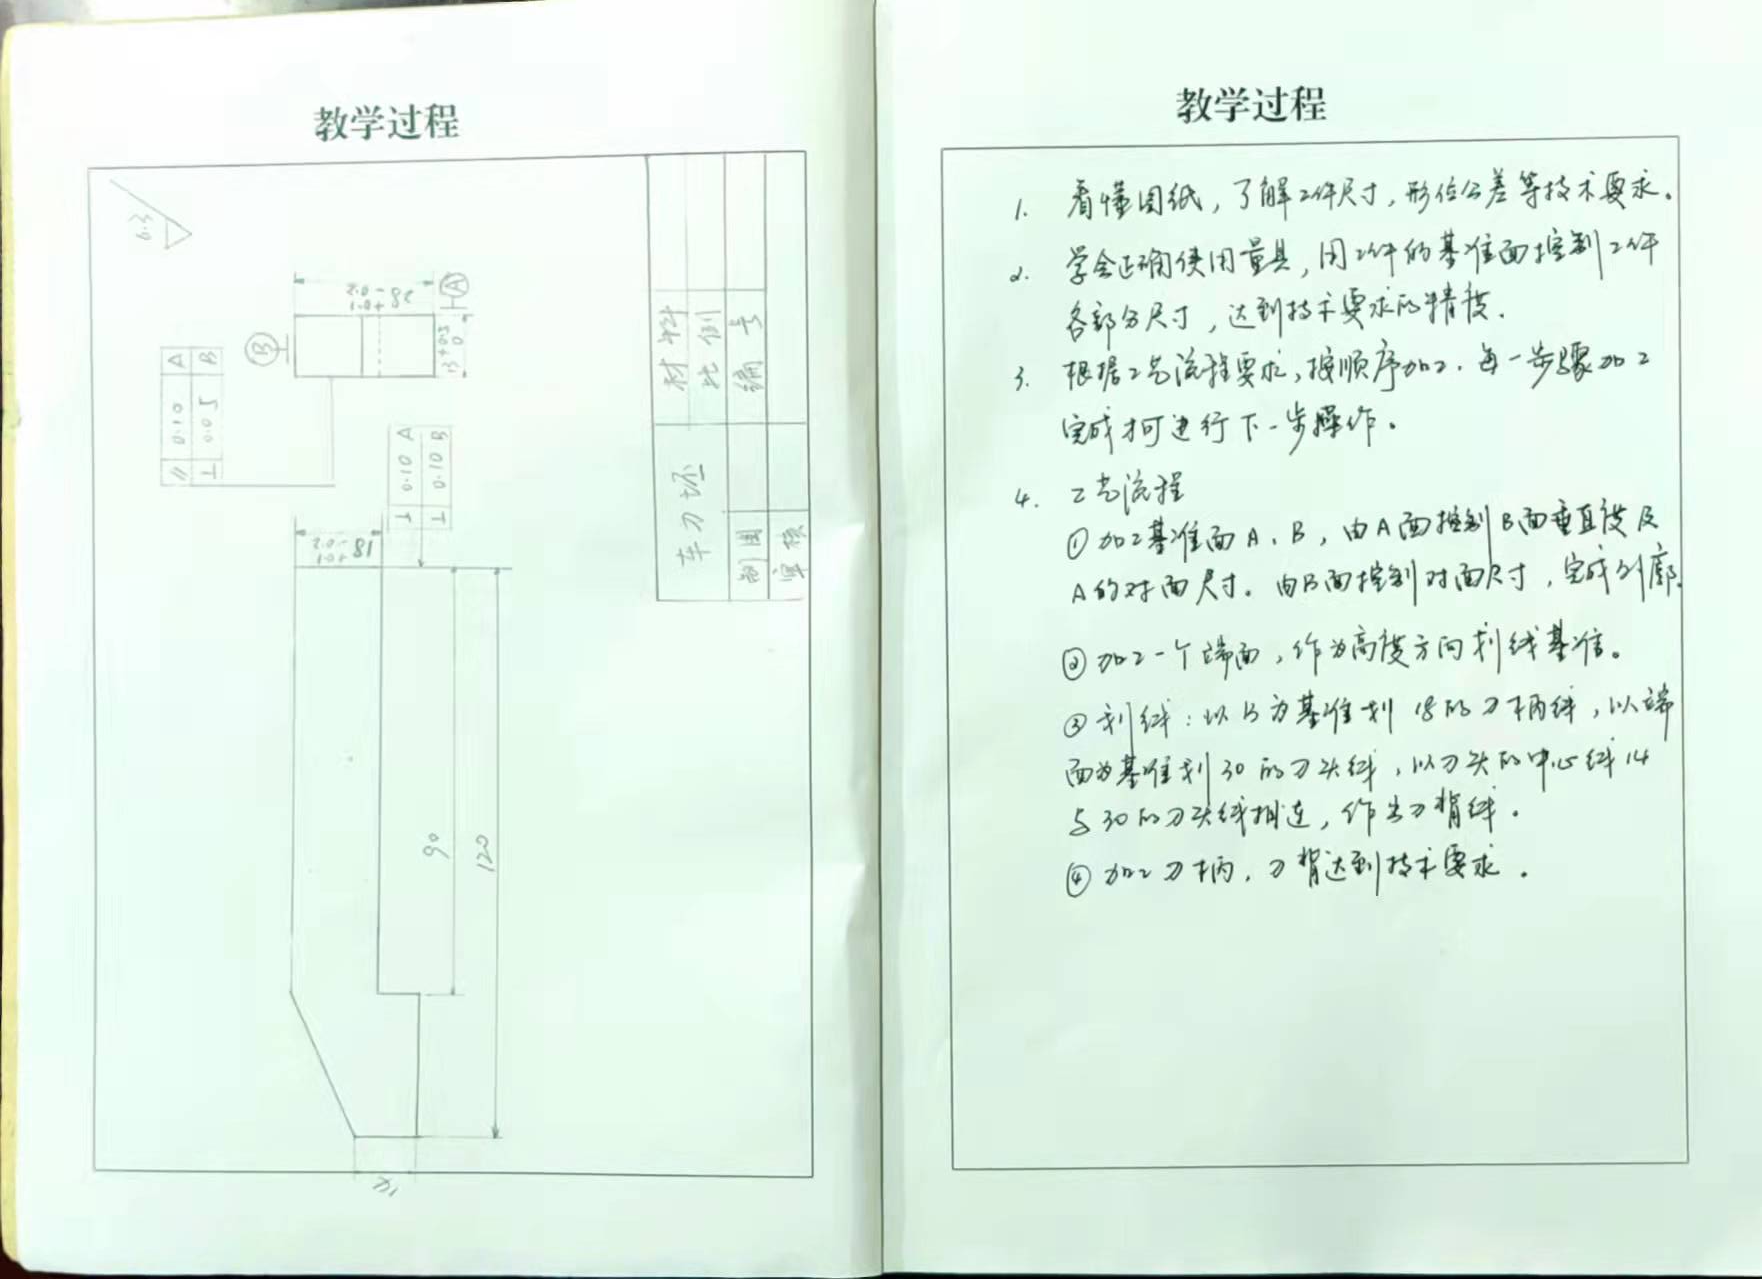 教学过程
6.3
28 +0.1 -0.2
A
B
13 +0.5 0
// 0.10 A
⊥ 0.05 B
⊥ 0.10 A
⊥ 0.10 B
18 +0.1 -0.2
90
120
14
车刀坯
材料
比例
编号
制图
审核
教学过程
1. 看懂图纸，了解工件尺寸，形位公差等技术要求。
2. 学会正确使用量具，用工件的基准面控制工件
各部分尺寸，达到技术要求的精度.
3. 根据工艺流程要求，按顺序加工. 每一步骤加工
完成才可进行下一步操作。
4. 工艺流程
① 加工基准面A、B，由A面控制B面垂直度及
A的对面尺寸。由B面控制对面尺寸，完成外廓.
② 加工一个端面，作为高度方向划线基准。
③ 划线：以B为基准划18的刀柄线，以端
面为基准划30的刀头线，以刀头的中心线14
与30的刀头线相连，作出刀背线。
④ 加工刀柄，刀背达到技术要求。